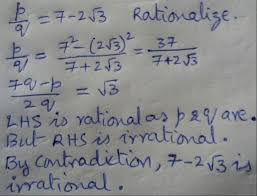 p/q = 7-2√3 Rationalize.
p/q = 7²-(2√3)² / 7+2√3 = 37 / 7+2√3
7q-p / 2q = √3
LHS is rational as p & q are.
But RHS is irrational.
By contradiction, 7-2√3 is
irrational.